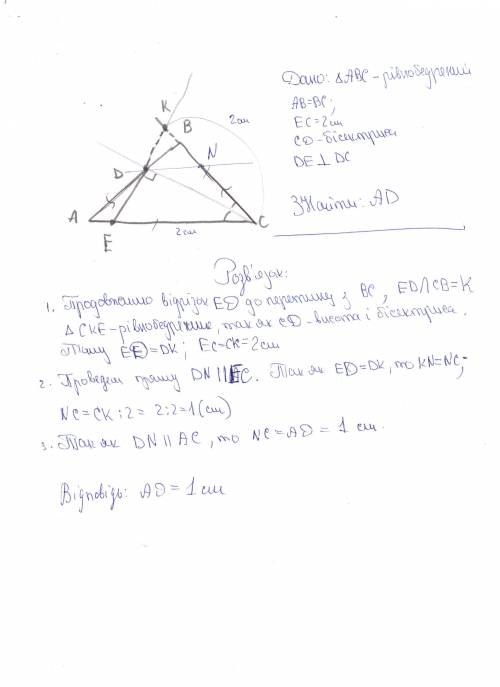 K
B
2см
N
D
A
E
2см
C
Дано: △ABC - рівнобедрений
AB=BC;
EC=2см
CD-бісектриса
DE⊥DC
Знайти: AD
Розв'язок:
1. Продовжимо відрізок ED до перетину з BC, ED∩CB=K
△CKE-рівнобедрений, так як CD-висота і бісектриса.
Тому ED=DK; EC=CK=2см
2. Проведем пряму DN||EC. Так як ED=DK, то KN=NC;
NC=CK:2=2:2=1(см)
3. Так як DN||AC, то NC=AD=1 см.
Відповідь: AD=1см